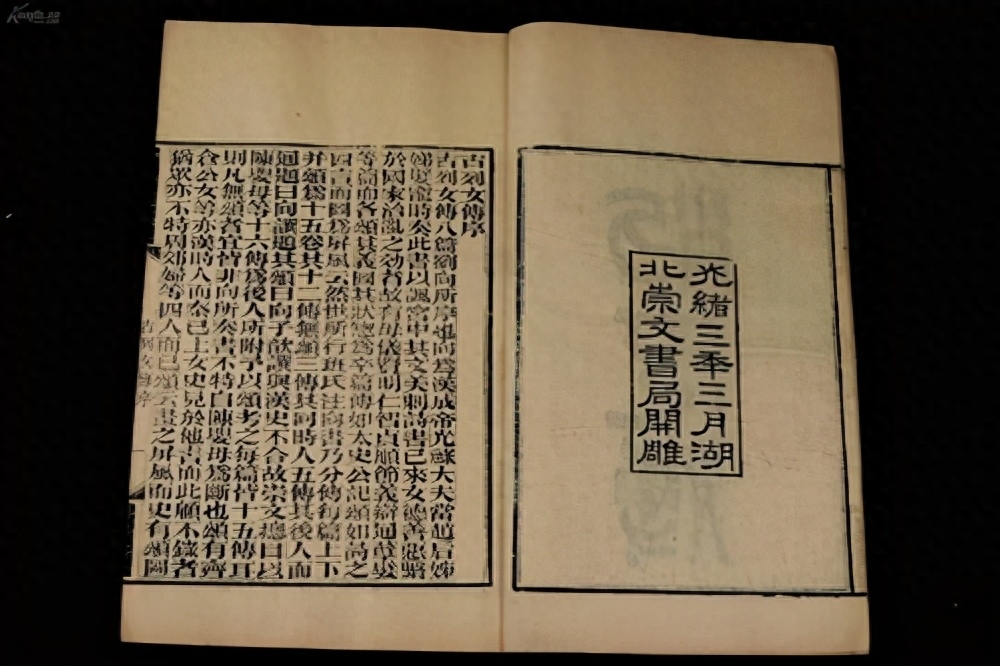 光緒三年三月湖
北崇文書局開雕
古列女傳序
古列女傳八篇劉向所序也向爲漢成帝光祿大夫當趙后姊
娣嬖寵時奏此書以諷宮中其文美刺詩書已來女德善惡繫
於國家治亂之效者故有母儀賢明仁智貞順節義辯通孽嬖
等篇而各頌其義圖其狀總爲卒篇傳如太史公記頌如詩之
四言而圖爲屏風云然世所行班氏注向書乃分傳每篇上下
并頌爲十五卷其十二傳無頌三傳其同時人五傳其後人而
通題曰向譔題其頌曰向子歆譔與漢史不合故崇文總目以
陳嬰母等十六傳爲後人所附予以頌考之每篇皆十五傳耳
則凡無頌者宜皆非向所奏書不特自陳嬰母爲斷也頌有齊
倉公女等亦漢時人而秦已上女史見於他書而此顧不錄者
猶眾亦不特周郊婦等四人而已頌云畫之屏風而史有頌圖
古列女傳序